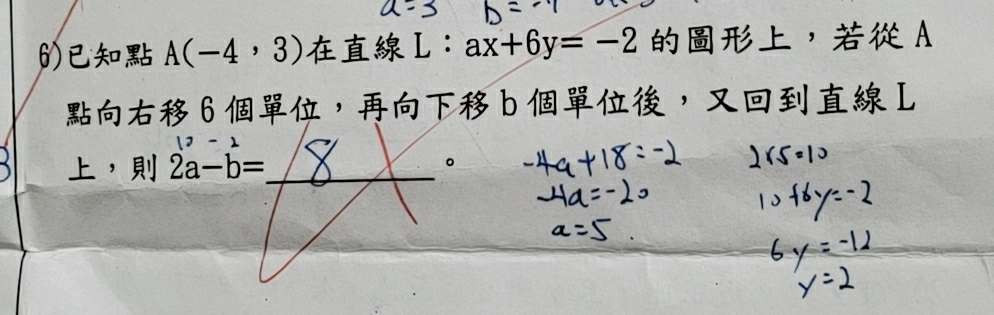 a=3 b=-1
6)已知點 A(−4，3)在直線 L：ax+6y= −2 的圖形上，若從 A
點向右移 6 個單位，再向下移 b 個單位後，又回到直線 L
10 - 2
上，則 2a−b= 8 。
-4a+18=-2
-4a=-20
a=5
2x5=10
10+6y=-2
6y=-12
y=2